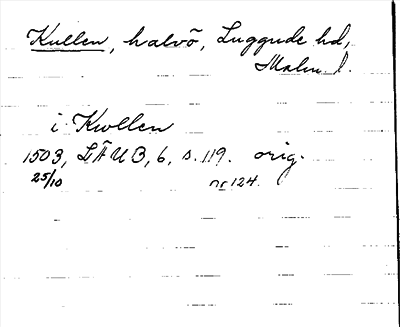 Kullen, halvö, Luggude hd,
Malm. l.
i Kwllen
1503, LÄUB, 6, s. 119. orig.
25/10 nr 124.